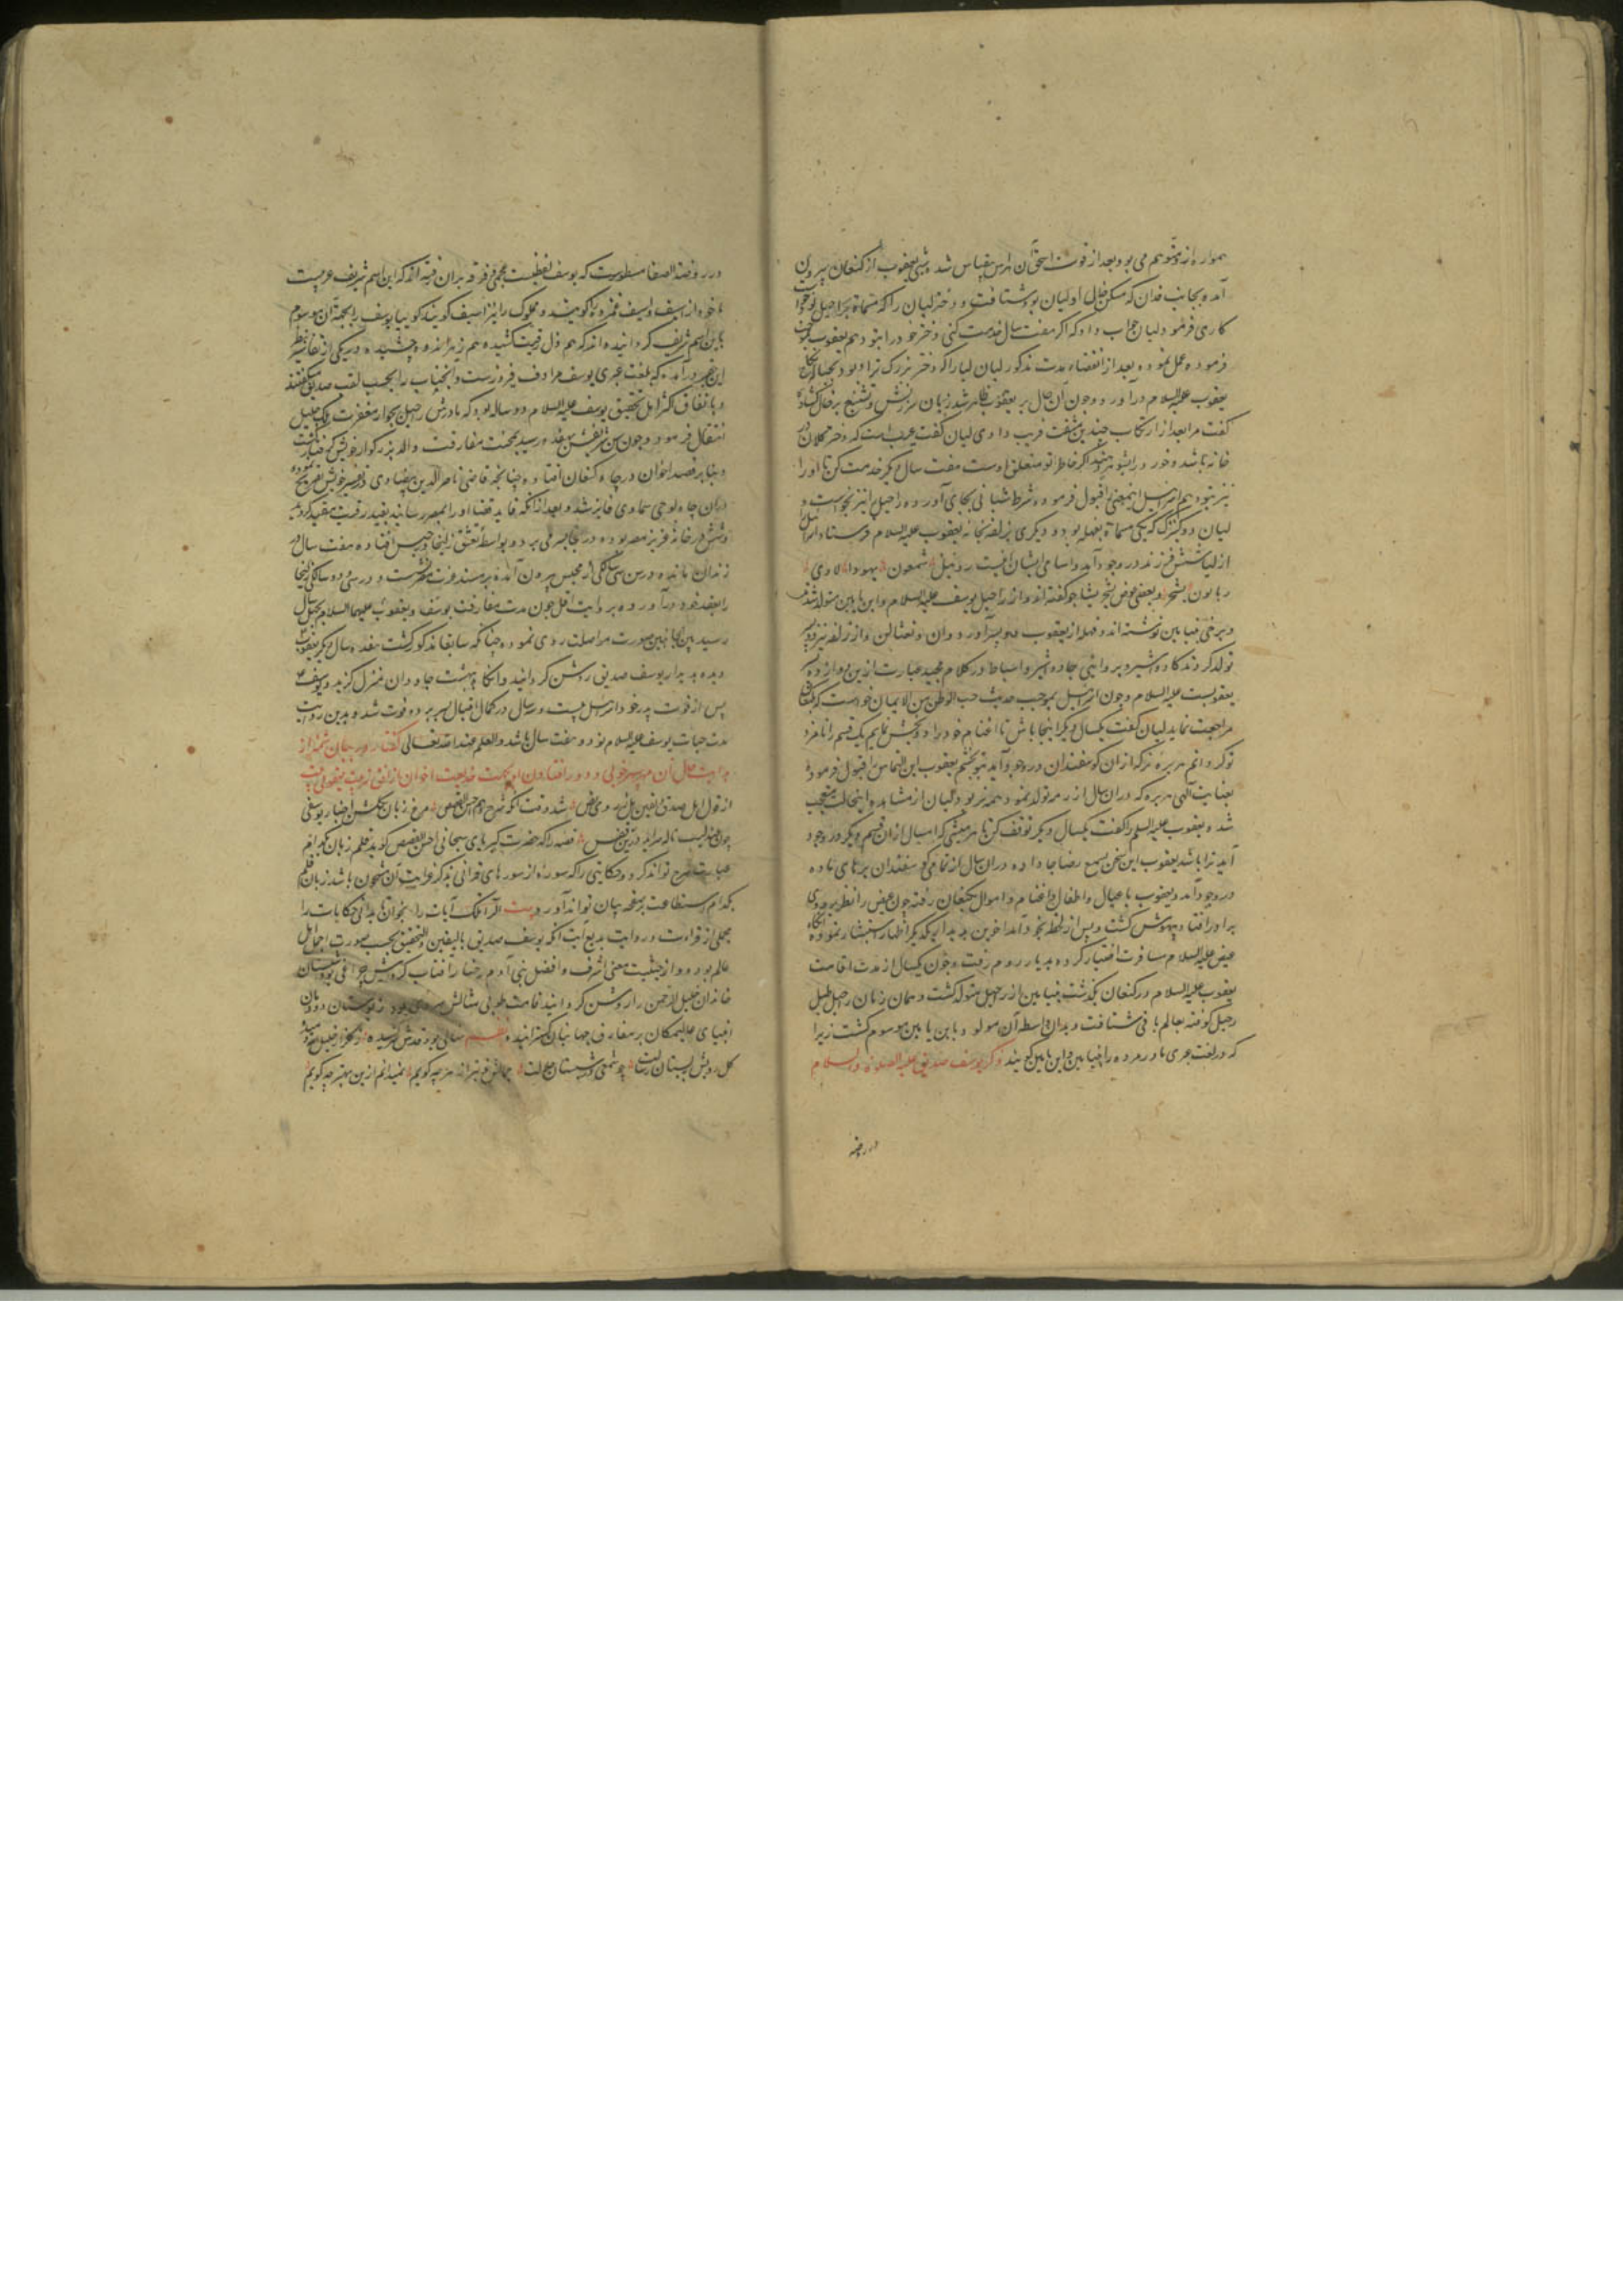 همواره از و متوهم می بود و بعد از فوت اسحق آن هراس بقیاس شد و شبی یعقوب از کنعان بیرون
آمده بجانب فدان که مسکن خال او لیان بود شتافت و دختر لیان را که مسماة براحیل بود
کاری فرمود لیان جواب داد که اگر هفت سال خدمت کنی دختر خود را بتو دهم یعقوب بموجب
فرموده عمل نموده بعد از انقضاء مدت مذکور لیان لیا را که دختر بزرگتر او بود
یعقوب علیه السلام درآورد و چون آن حال بر یعقوب ظاهر شد زبان سرزنش و تشنیع بر خال کشاده
گفت مرا بعد از ارتکاب چندین مشقت فریب دادی لیان گفت عیب است که دختر کلان در
خانه باشد و خورد را بشوهر دهند اگر خاطر تو متعلق اوست هفت سال دیگر خدمت کن تا او را
نیز بتو دهم اسرائیل اینمعنی را قبول فرموده شرط شبانی بجای آورده راحیل را نیز بخواست و
لیان دو کنیزک که یکی مسماة ببلهه بود و دیگری بزلفه بخانه یعقوب علیه السلام فرستاد
از لیا شش فرزند در وجود آمد و اسامی ایشان اینست روبیل شمعون یهودا لاوی
ربابون یشجر و بعضی عوض یشجر یشاجر گفته اند و از راحیل یوسف علیه السلام و ابن یامین متولد شدند
و برخی بنیامین نوشته اند و بلهه از یعقوب دو پسر آورد دان و نفتالن و از زلفه نیز دو پسر
تولد کردند کاد و اشیر و بروایتی جاد و اشیر و اسباط در کلام مجید عبارت ازین دوازده
یعقوبست علیه السلام و چون اسرائیل بموجب حدیث حب الوطن من الایمان خواست که بکنعان
مراجعت نماید لیان گفت یکسال دیگر اینجا باش تا اغنام خود را دو بخش نمایم یک قسم را نامزد
تو کردانم هر بره نر که از آن کوسفندان در وجود آید بتو بخشم یعقوب این التماس را قبول فرموده
بعنایت آلهی هر بره که در آن سال از رمه تولد نمود همه نر بود و لیان از مشاهده اینحالت متعجب
شد و یعقوب علیه السلم را گفت یکسال دیگر توقف کن تا هر میشی که امسال از آن قسم دیگر در وجود
آید ترا باشد یعقوب این سخن بسمع رضا جا داده در آن سال از تمامی کوسفندان بره های ماده
در وجود آمد و یعقوب با عیال و اطفال و اغنام و اموال بکنعان رفته چون عیص را نظر بر روی
برادر افتاد بیهوش کشت و پس از لحظه بخود آمد اخوین بدیدار یکدیگر اظهار استبشار نموده آنگاه
عیص علیه السلام مسافرت اختیار کرده بدیار روم رفت و چون یکسال از مدت اقامت
یعقوب علیه السلام در کنعان بگذشت بنیامین از راحیل متولد کشت و همان زمان راحیل طبل
رحیل کوفته بعالم باقی شتافت و بدان واسطه آن مولود بابن یامین موسوم کشت زیرا
که در لغت عبری مادر مرده را بنیامین و ابن یامین کویند ذکر یوسف صدیق علیه الصلوة و السلام
در روضه
در روضة الصفا مسطورست که یوسف لفظیست عجمی و فرقه بران رفته اند که این اسم شریف عربیست
ماخوذ از اسف و اسیف غمزده را کویند و مملوک را نیز اسیف کویند کوئیا یوسف را بجهة آن موسوم
باین اسم شریف کردانیده اند که هم ذل رقیت کشیده هم زهر اندوه چشیده در یکی از تفاسیر بنظر
این فقیر درآمده که بلغت عبری یوسف مرادف فیروزست و آنجناب را بحسب لقب صدیق میگفتند
و باتفاق اکثر اهل تحقیق یوسف علیه السلام دو ساله بود که مادرش راحیل بجوار مغفرت ملک جلیل
انتقال فرمود و چون سن شریفش بهفده رسید بمحنت مفارقت والد بزرکوار خویش گرفتار گشت
و بنا بر قصد اخوان در چاه کنعان افتاد چنانچه قاضی ناصر الدین بیضاوی در تفسیر خویش تصریح نموده
در آن چاه بوحی سماوی فایز شد و بعد از آنکه قاید قضا او را بمصر رسانید بقید رقیت مقید کردید
و شش در خانه عزیز مصر بوده در بجا بسر می برد و بواسطه تعشق زلیخا در حبس افتاده هفت سال در
زندان مانده و در سن سی سالگی از محبس بیرون آمده بر مسند عزت نشست و در سی و دو سالگی زلیخا
را بعقد خود درآورده بروایت اقل چون مدت مفارقت یوسف و یعقوب علیهما السلام بچهل سال
رسید بین الجانبین صورت مواصلت روی نمود چنانکه سابقا مذکور کشت هفده سال دیگر یعقوب
دیده بدیدار یوسف صدیق روشن کردانید و آنگاه بهشت جاودان منزل کزید و یوسف
پس از فوت پدر خود اسرائیل بیست و سه سال در کمال اقبال بسر برد و فوت شد و بدین روایت
مدت حیات یوسف علیه السلام نود و هفت سال باشد و العلم عند الله تعالی گفتار در بیان شمه از
بدایت حال آن مهر سپهر خوبی و دور افتادن او بکت خدیعت اخوان از افق تربیت یعقوبی
از قول اهل صدق شد وقت آنکه شرح دهم احسن القصص مرغ زبان بگلشن اخبار یوسفی
چون عندلیب ناله سراید درین قفس قصه را که حضرت کبریای سبحانی احسن القصص کوید قلم زبان بکدام
عبارت شرح تواند کرد و حکایتی را که سوره از سورهای قرانی بذکر غرایب آن مشحون باشد زبان قلم
بکدام استطاعت بر صفحه بیان تواند آورد بیت الر تلک آیات را بخوان تا بدانی حکایات را
مجملی از قراءت و روایت بدیع آیت آنکه یوسف صدیق بالیقین و التحقیق بحسب صورت اجمل اهل
عالم بود و از حیثیت معنی اشرف و افضل بنی آدم رخسار آفتاب کردارش چراغی بود شبستان
خاندان خلیل الرحمن را روشن کردانید قامت طوبی مثالش سروی بود ز بوستان دودمان
انبیای عالیمکان بر مفارق جهانیان گسترانیده نظم نهالی بود قدش
کل رویش بستان رسالت چو شمعی در شبستان جلالت جمالش خوبتر از هرچه کویم نمیدانم ازین بهتر چه کویم